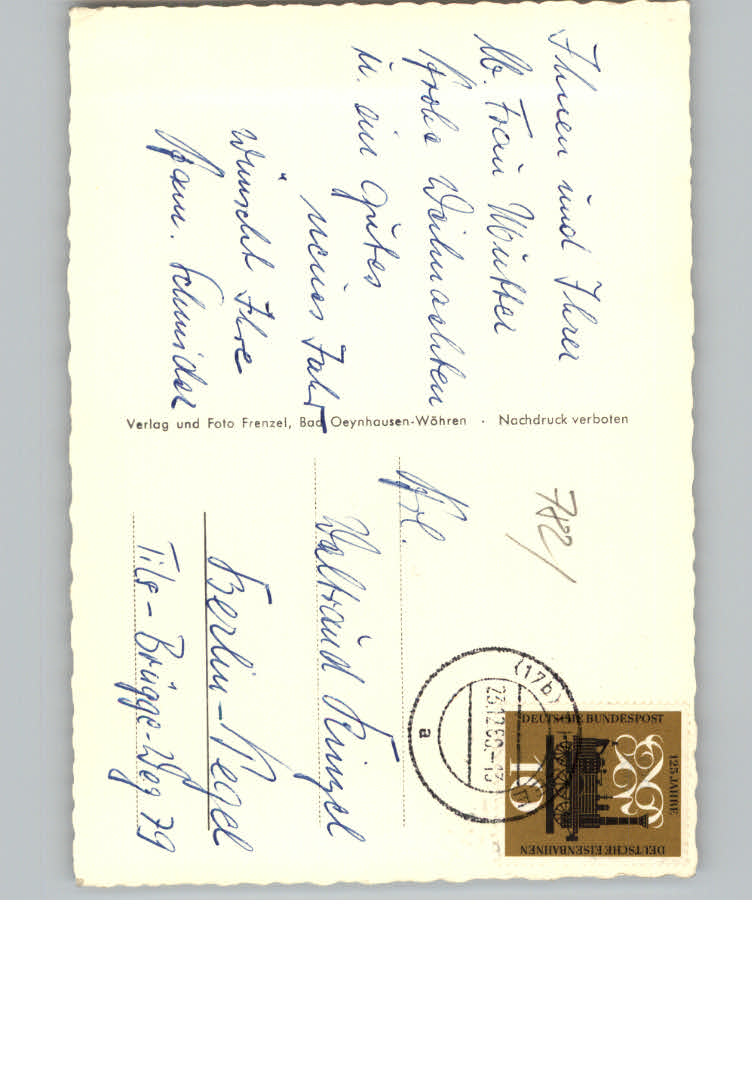 Ihnen und Ihrer
lb. Frau Mutter
frohe Weihnachten
u. ein gutes
neues Jahr
wünscht Ihre
Fam. Schneider
Verlag und Foto Frenzel, Bad Oeynhausen-Wöhren · Nachdruck verboten
782/
Frl.
Waltraud Künzel
Berlin-Tegel
Tile-Brügge-Weg 79
(17b)
23.12.60.-13
a
DEUTSCHE BUNDESPOST
10
125 JAHRE
DEUTSCHE EISENBAHNEN